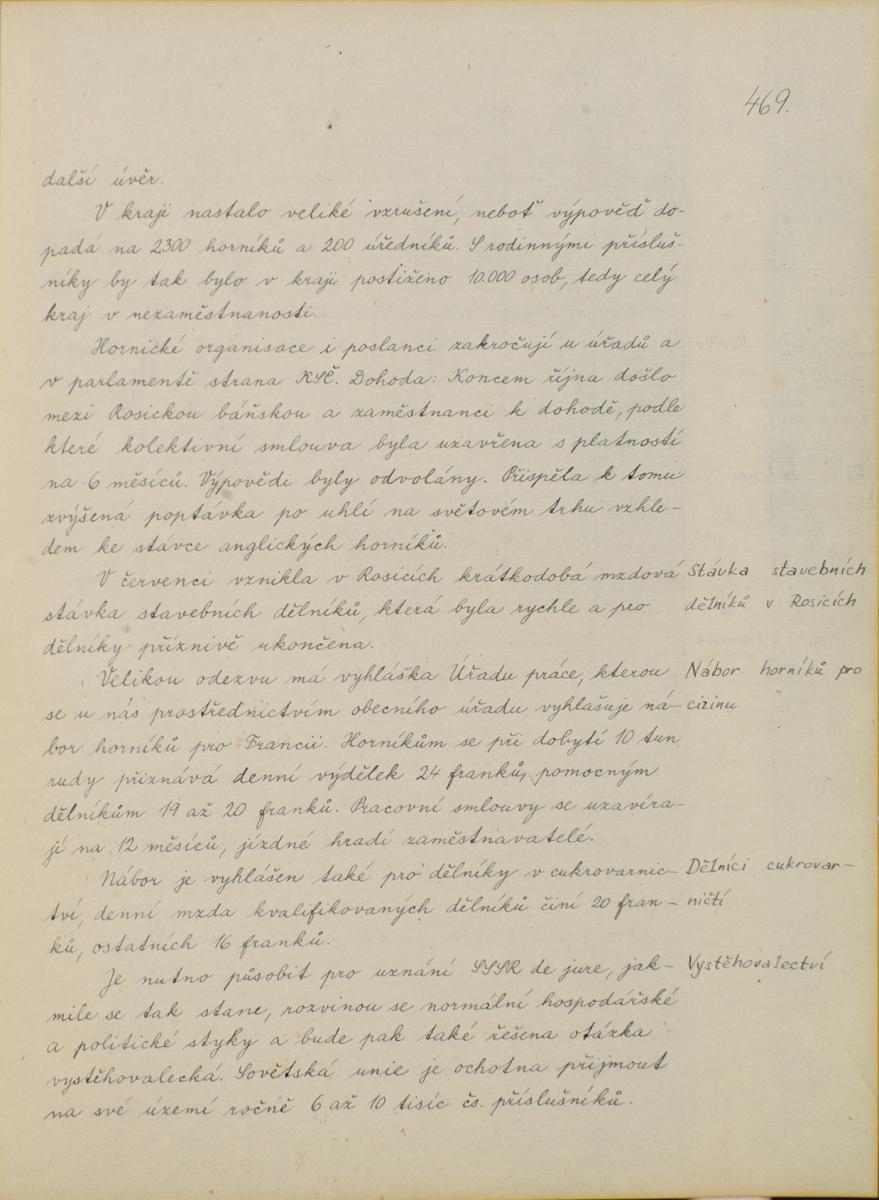 469.
další úvěr.
V kraji nastalo veliké vzrušení, neboť výpověď do-
padá na 2300 horníků a 200 úředníků. S rodinnými přísluš-
níky by tak bylo v kraji postiženo 10.000 osob, tedy celý
kraj v nezaměstnanosti.
Hornické organisace i poslanci zakročují u úřadů a
v parlamentě strana KSČ. Dohoda: Koncem října došlo
mezi Rosickou báňskou a zaměstnanci k dohodě, podle
které kolektivní smlouva byla uzavřena s platností
na 6 měsíců. Výpovědi byly odvolány. Přispěla k tomu
zvýšená poptávka po uhlí na světovém trhu vzhle-
dem ke stávce anglických horníků.
V červenci vznikla v Rosicích krátkodobá mzdová
stávka stavebních dělníků, která byla rychle a pro
dělníky příznivě ukončena.
Stávka stavebních
dělníků v Rosicích
Velikou odezvu má vyhláška Úřadu práce, kterou
se u nás prostřednictvím obecního úřadu vyhlašuje ná-
bor horníků pro Francii. Horníkům se při dobytí 10 tun
rudy přiznává denní výdělek 24 franků, pomocným
dělníkům 19 až 20 franků. Pracovní smlouvy se uzavíra-
jí na 12 měsíců, jízdné hradí zaměstnavatelé.
Nábor horníků pro
cizinu
Nábor je vyhlášen také pro dělníky v cukrovarnic-
tví, denní mzda kvalifikovaných dělníků činí 20 fran-
ků, ostatních 16 franků.
Dělníci cukrovar-
ničtí
Je nutno působit pro uznání SSSR de jure, jak-
mile se tak stane, rozvinou se normální hospodářské
a politické styky a bude pak také řešena otázka
vystěhovalecká. Sovětská unie je ochotna přijmout
na své území ročně 6 až 10 tisíc čs. příslušníků.
Vystěhovalectví